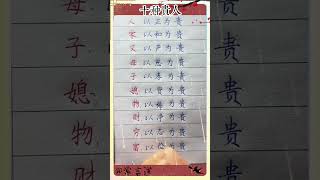 十种贵人
人 以正为贵
家 以和为贵
父 以严为贵
母 以慈为贵
子 以孝为贵
媳 以贤为贵
物 以稀为贵
财 以净为贵
穷 以志为贵
富 以俭为贵
母
子
媳
物
财
贵
贵